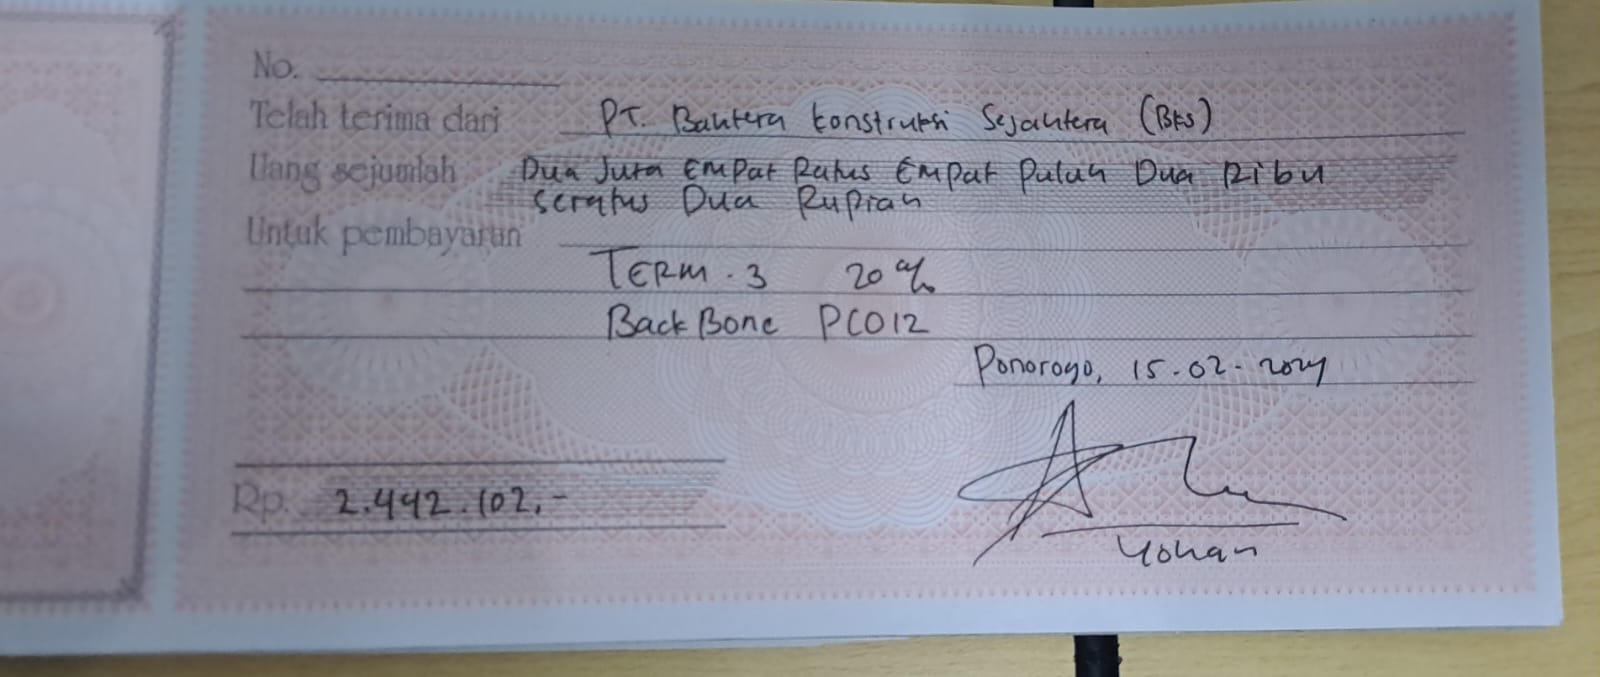 No.
Telah terima dari PT. Bahtera Konstruksi Sejahtera (BKS)
Uang sejumlah Dua Juta Empat Ratus Empat Puluh Dua Ribu
Seratus Dua Rupiah
Untuk pembayaran
TERM . 3 20 %
BackBone PC012
Ponorogo, 15-02-2024
Rp. 2.442.102,-
Yohan